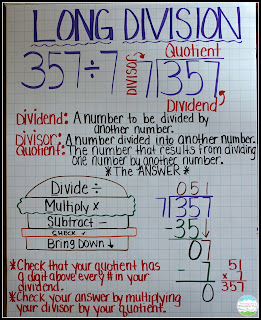 LONG DIVISION
Quotient
357÷7
DIVISOR
7 357
Dividend
Dividend: A number to be divided by
another number.
Divisor: A number divided into another number.
Quotient: The number that results from dividing
one number by another number.
*The ANSWER*
Divide ÷
Multiply x
Subtract -
CHECK ✓
Bring Down ↓
051
7 357
-35↓
07
- 7
0
51
x 7
357
*Check that your quotient has
a digit above every # in your
dividend.
*Check your answer by multiplying
your divisor by your quotient.